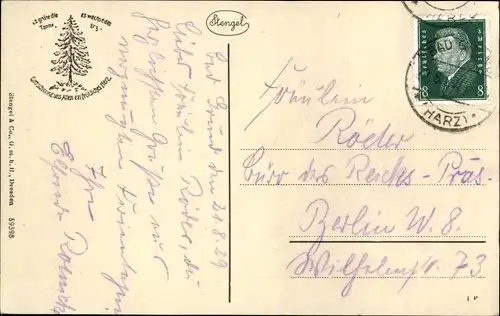 Es grüne die Tanne,
es wachse das Erz,
Gott schenke uns Allen ein fröhliches Herz.
Stengel & Co., G. m. b. H., Dresden 59398
Stengel
Bad Grund den 21.8.29
Liebe Fräulein Röder, die
herzlichsten Grüße aus
vergnügten Ferientagen
Ihre
Fräulein
Röder
Büro des Reichs-Präs.
Berlin W. 8.
Wilhelmstr. 73
BAD
(HARZ)
DEUTSCHES REICH
8 8